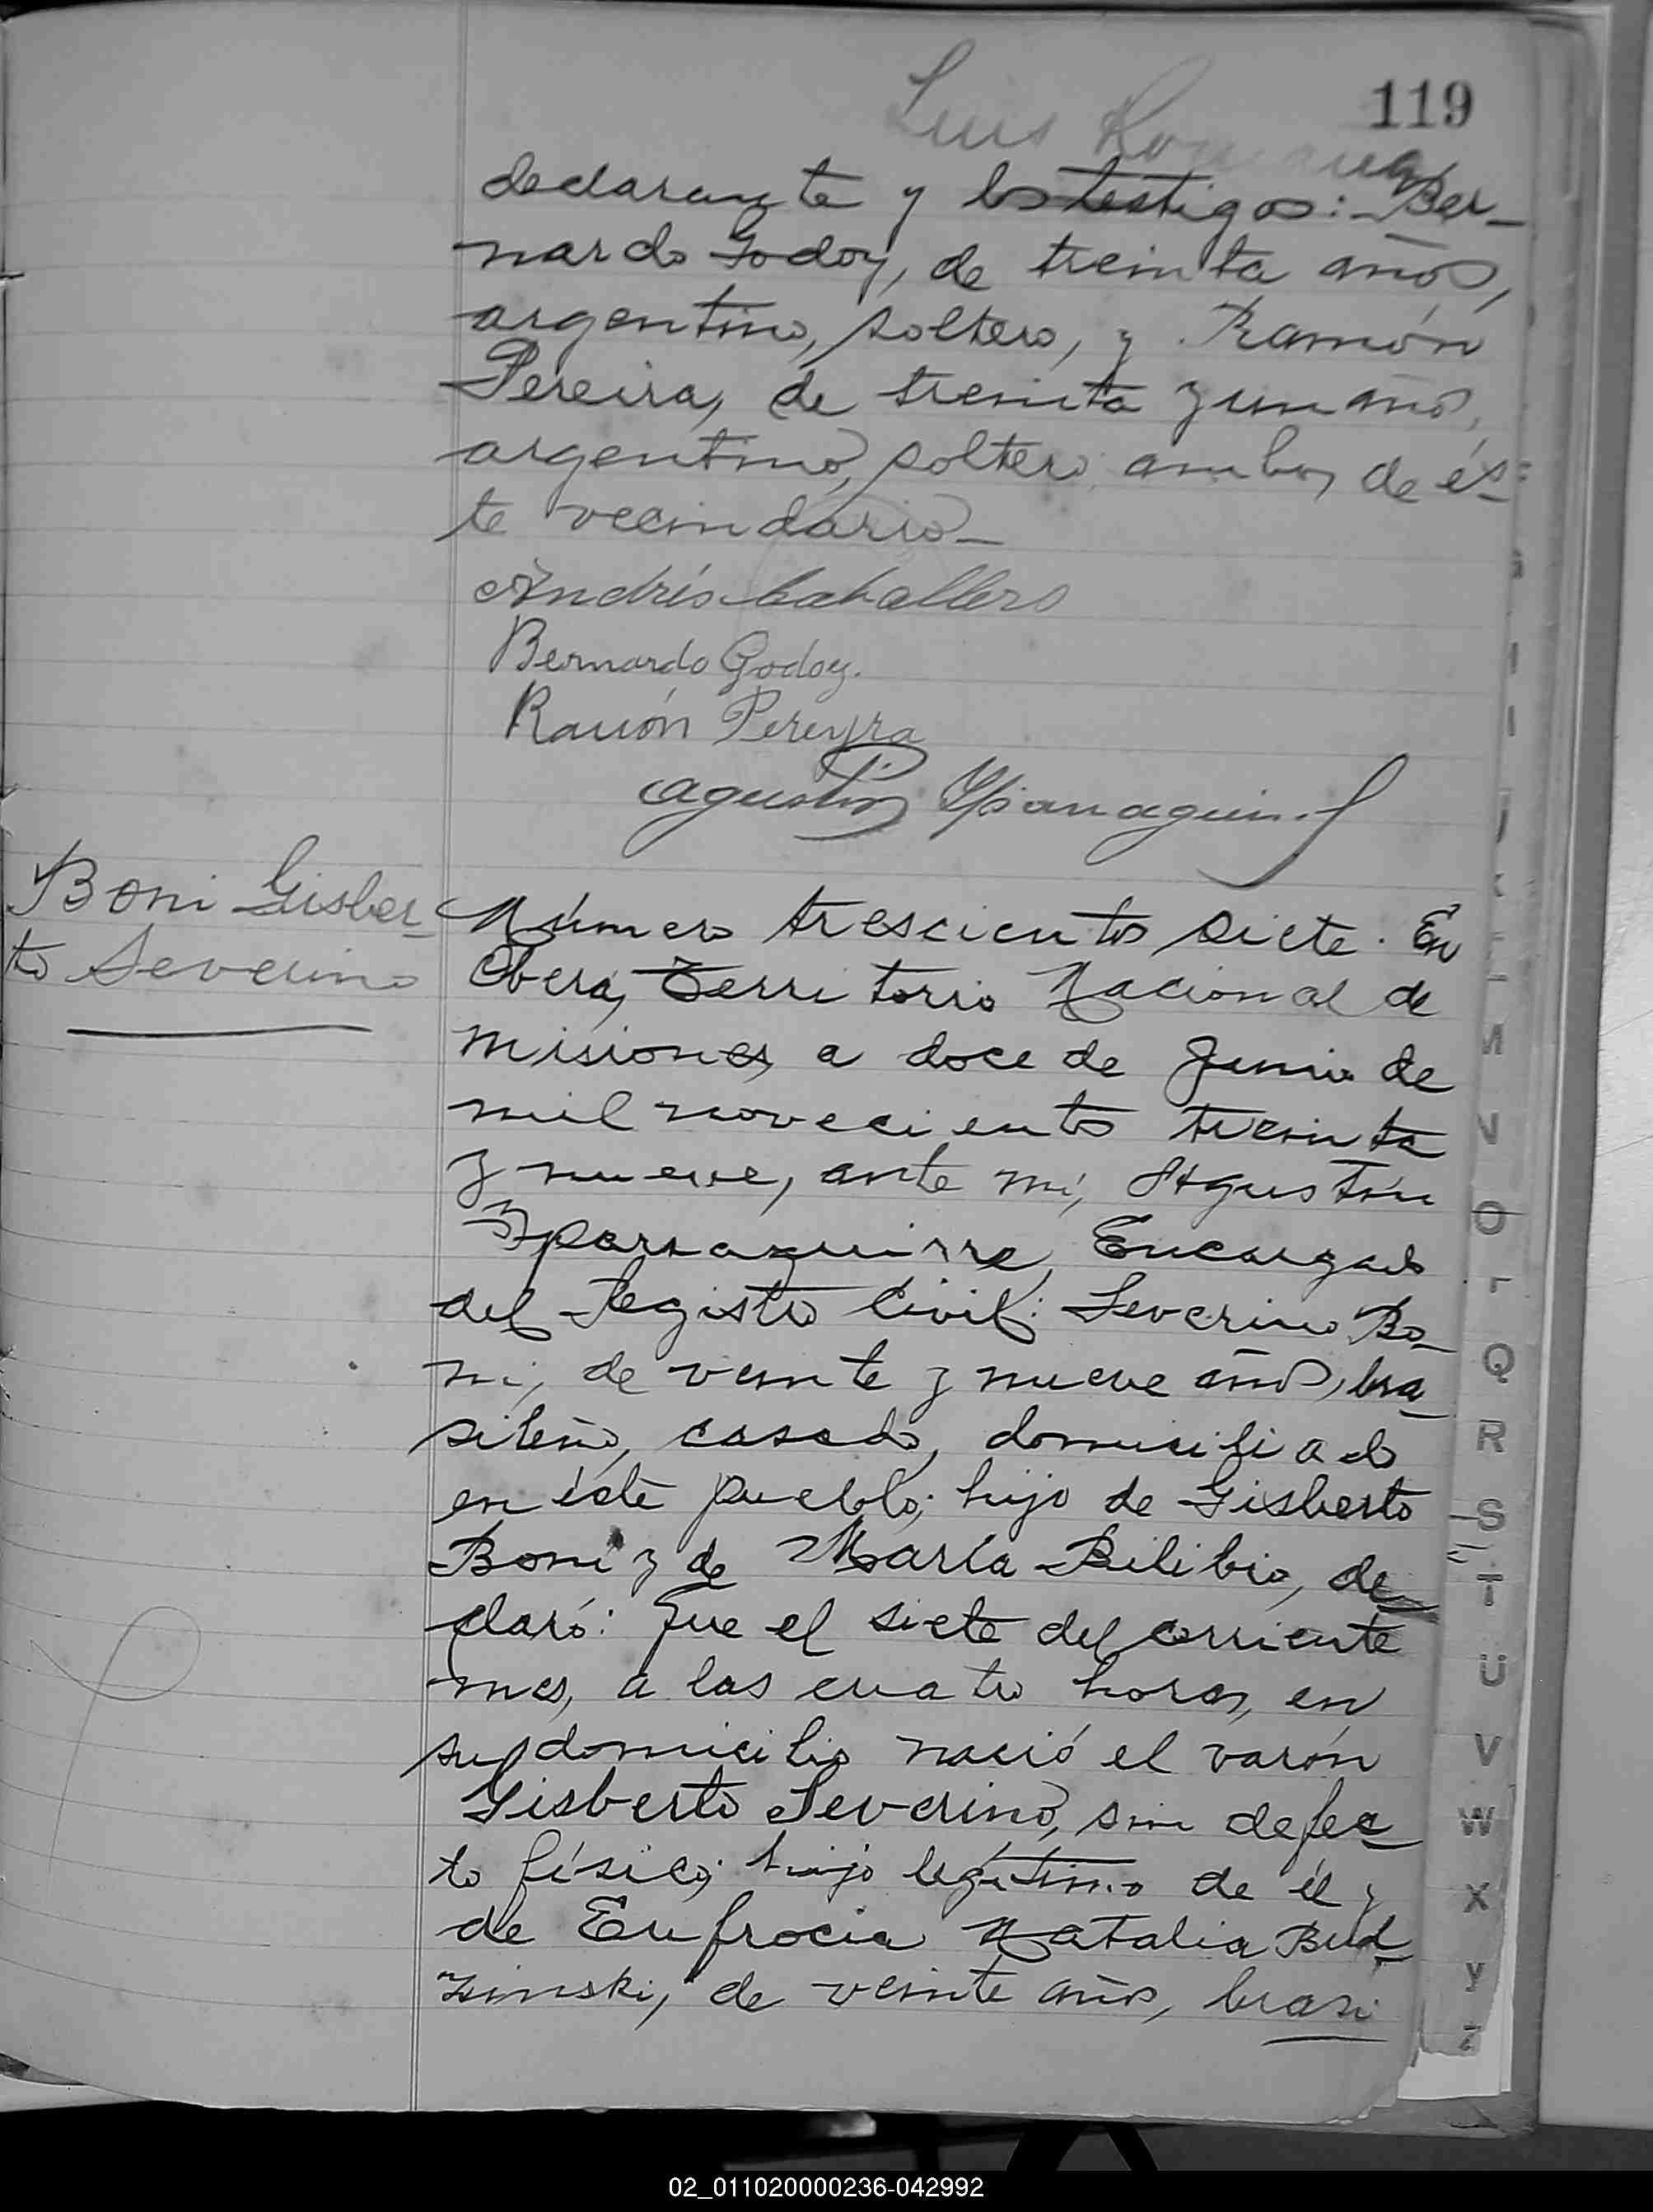 119
Luis
declarante y los testigos: Ber-
nardo Godoy, de treinta años,
argentino, soltero, y Ramón
Pereira, de treinta y un años,
argentino, soltero ambos de és-
te vecindario_
Andrés Caballero
Bernardo Godoy.
Ramón Pereyra
Agustín Yparraguirre
Boni Gisber-
to Severino
Número trescientos siete. En
Oberá, Territorio Nacional de
Misiones, a doce de Junio de
mil novecientos treinta
y nueve, ante mí, Agustín
Yparraguirre, Encargado
del Registro Civil: Severino Bo-
ni, de veinte y nueve años, bra-
sileño, casado, domiciliado
en éste pueblo; hijo de Gisberto
Boni y de María Bilibio, de-
claró: Que el siete del corriente
mes, a las cuatro horas, en
su domicilio nació el varón
Gisberto Severino, sin defec-
to físico; hijo legítimo de él y
de Eufrocia Natalia Bud-
zinski, de veinte años, brasi
Q
R
S
T
U
V
W
X
Y
Z
02_011020000236-042992